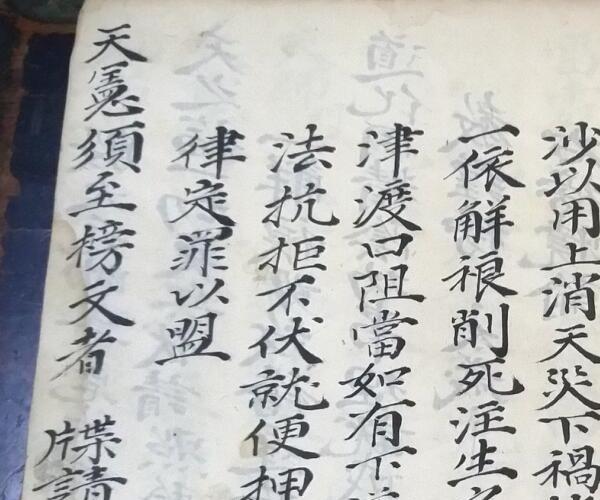 沙以用上消天災下禍
一依解禳削死注生
津渡口阻當如有下
法抗拒不伏就便押
律定罪以盟
天憲須至榜文者 牒請